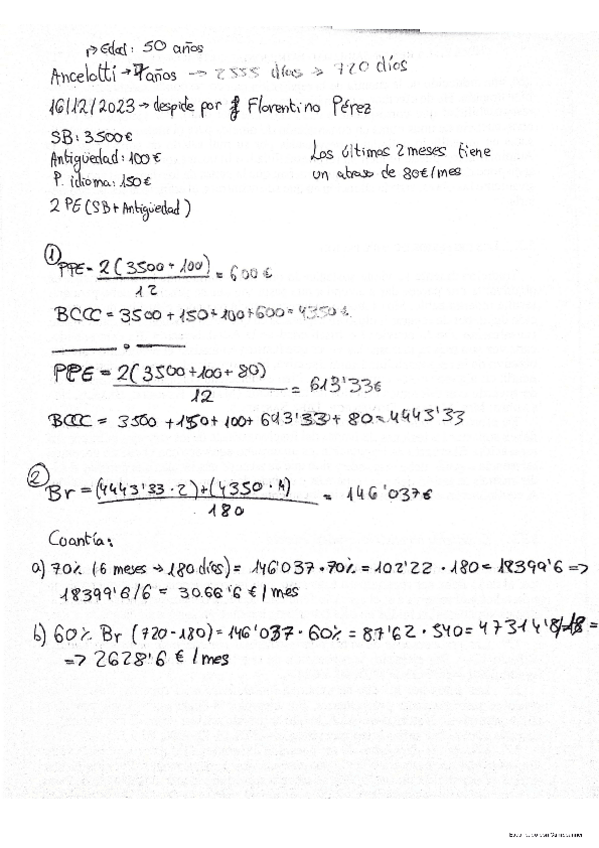 ↱ Edad: 50 años
Ancelotti → 7 años → 2555 días → 720 días
16/12/2023 → despide por Florentino Pérez
SB: 3500€
Antigüedad: 100€
P. idioma: 150€
2 PE (SB + Antigüedad)
Los últimos 2 meses tiene
un atraso de 80€/mes
① PPE = 2(3500 + 100) / 12 = 600€
BCCC = 3500 + 150 + 100 + 600 = 4350€
PPE = 2(3500 + 100 + 80) / 12 = 613'33€
BCCC = 3500 + 150 + 100 + 613'33 + 80 = 4443'33
② Br = (4443'33 · 2) + (4350 · 4) / 180 = 146'037€
Cuantía:
a) 70% (6 meses → 180 días) = 146'037 · 70% = 102'22 · 180 = 18399'6 =>
18399'6/6 = 3066'6 €/mes
b) 60% Br (720-180) = 146'037 · 60% = 87'62 · 540 = 47314'8/18 =
=> 2628'6 €/mes